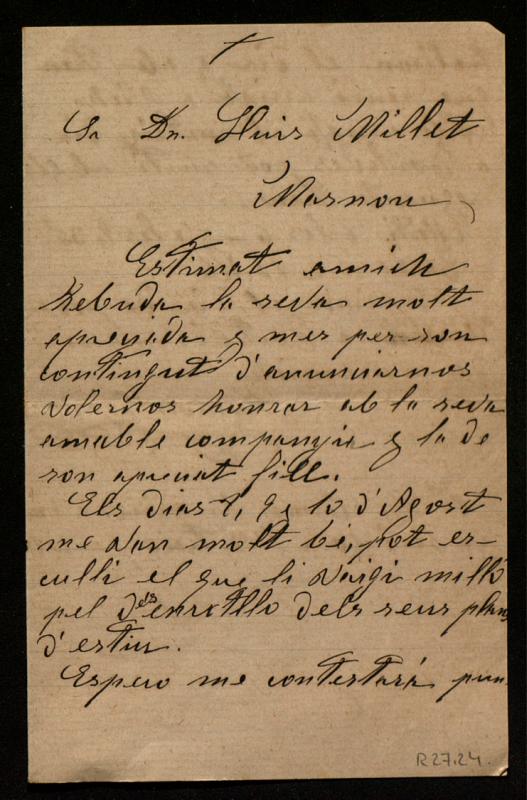 Sr Dn. Lluis Millet
Masnou
Estimat amich
Rebuda la seva molt
apreciada y mes per son
contingut d'anunciarnos
volernos honrar ab la seva
amable companyia y la de
son apreciat fill.
Els dias 8, 9 y 10 d'Agost
me van molt bé, pot es-
culli el que li vaigi milló
pel desenrotllo dels seus plans
d'estiu.
Espero me contestará pun
R27.24.